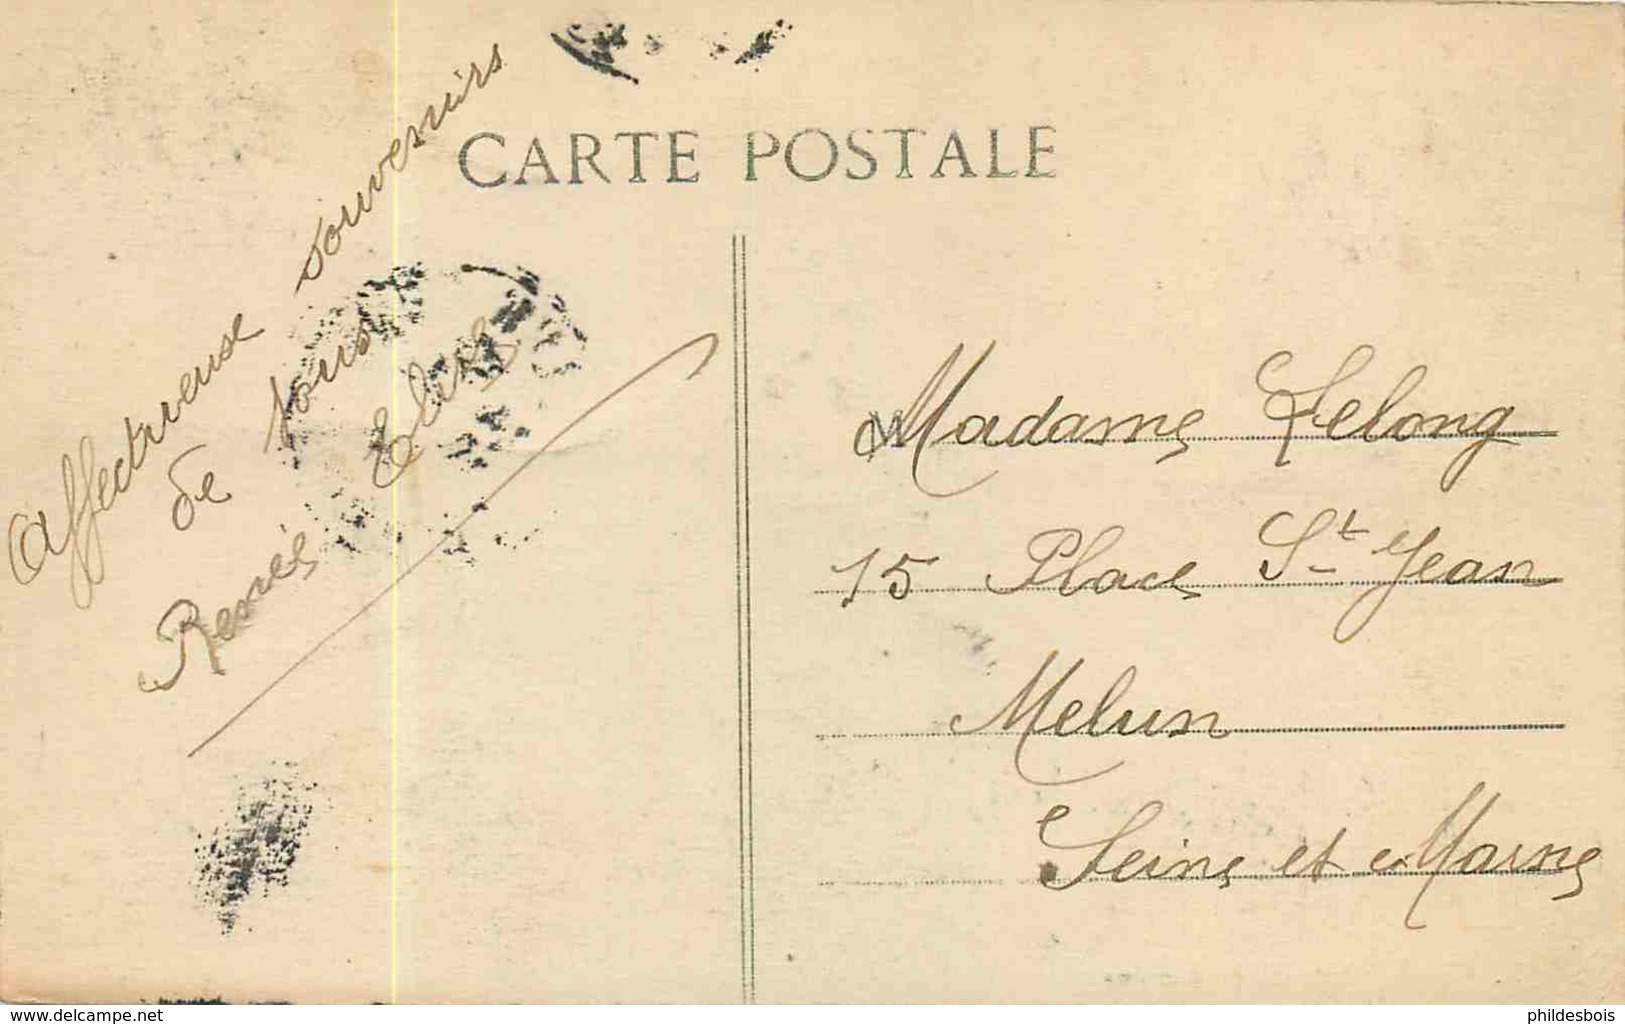 CARTE POSTALE
Affectueuse souvenirs
de tous
Renée
Madame Lelong
15 Place St Jean
Melun
Seine et Marne
www.delcampe.net
phildesbois